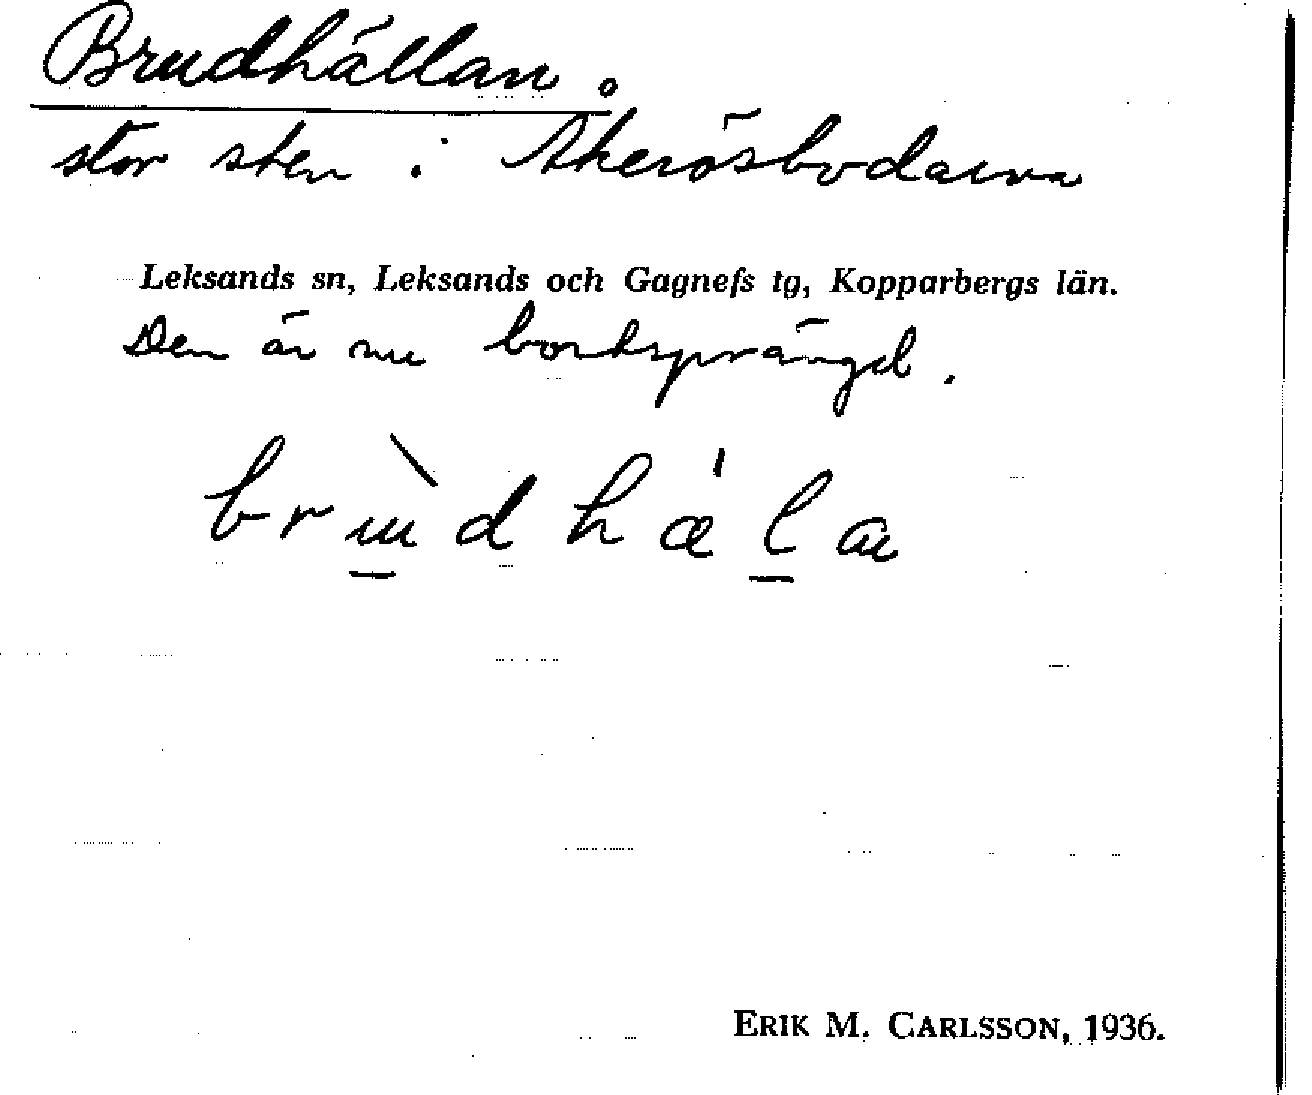 Brudhällan.
stor sten i Åkerösbodarna
Leksands sn, Leksands och Gagnefs tg, Kopparbergs län.
Den är nu bortsprängd.
ERIK M. CARLSSON, 1936.